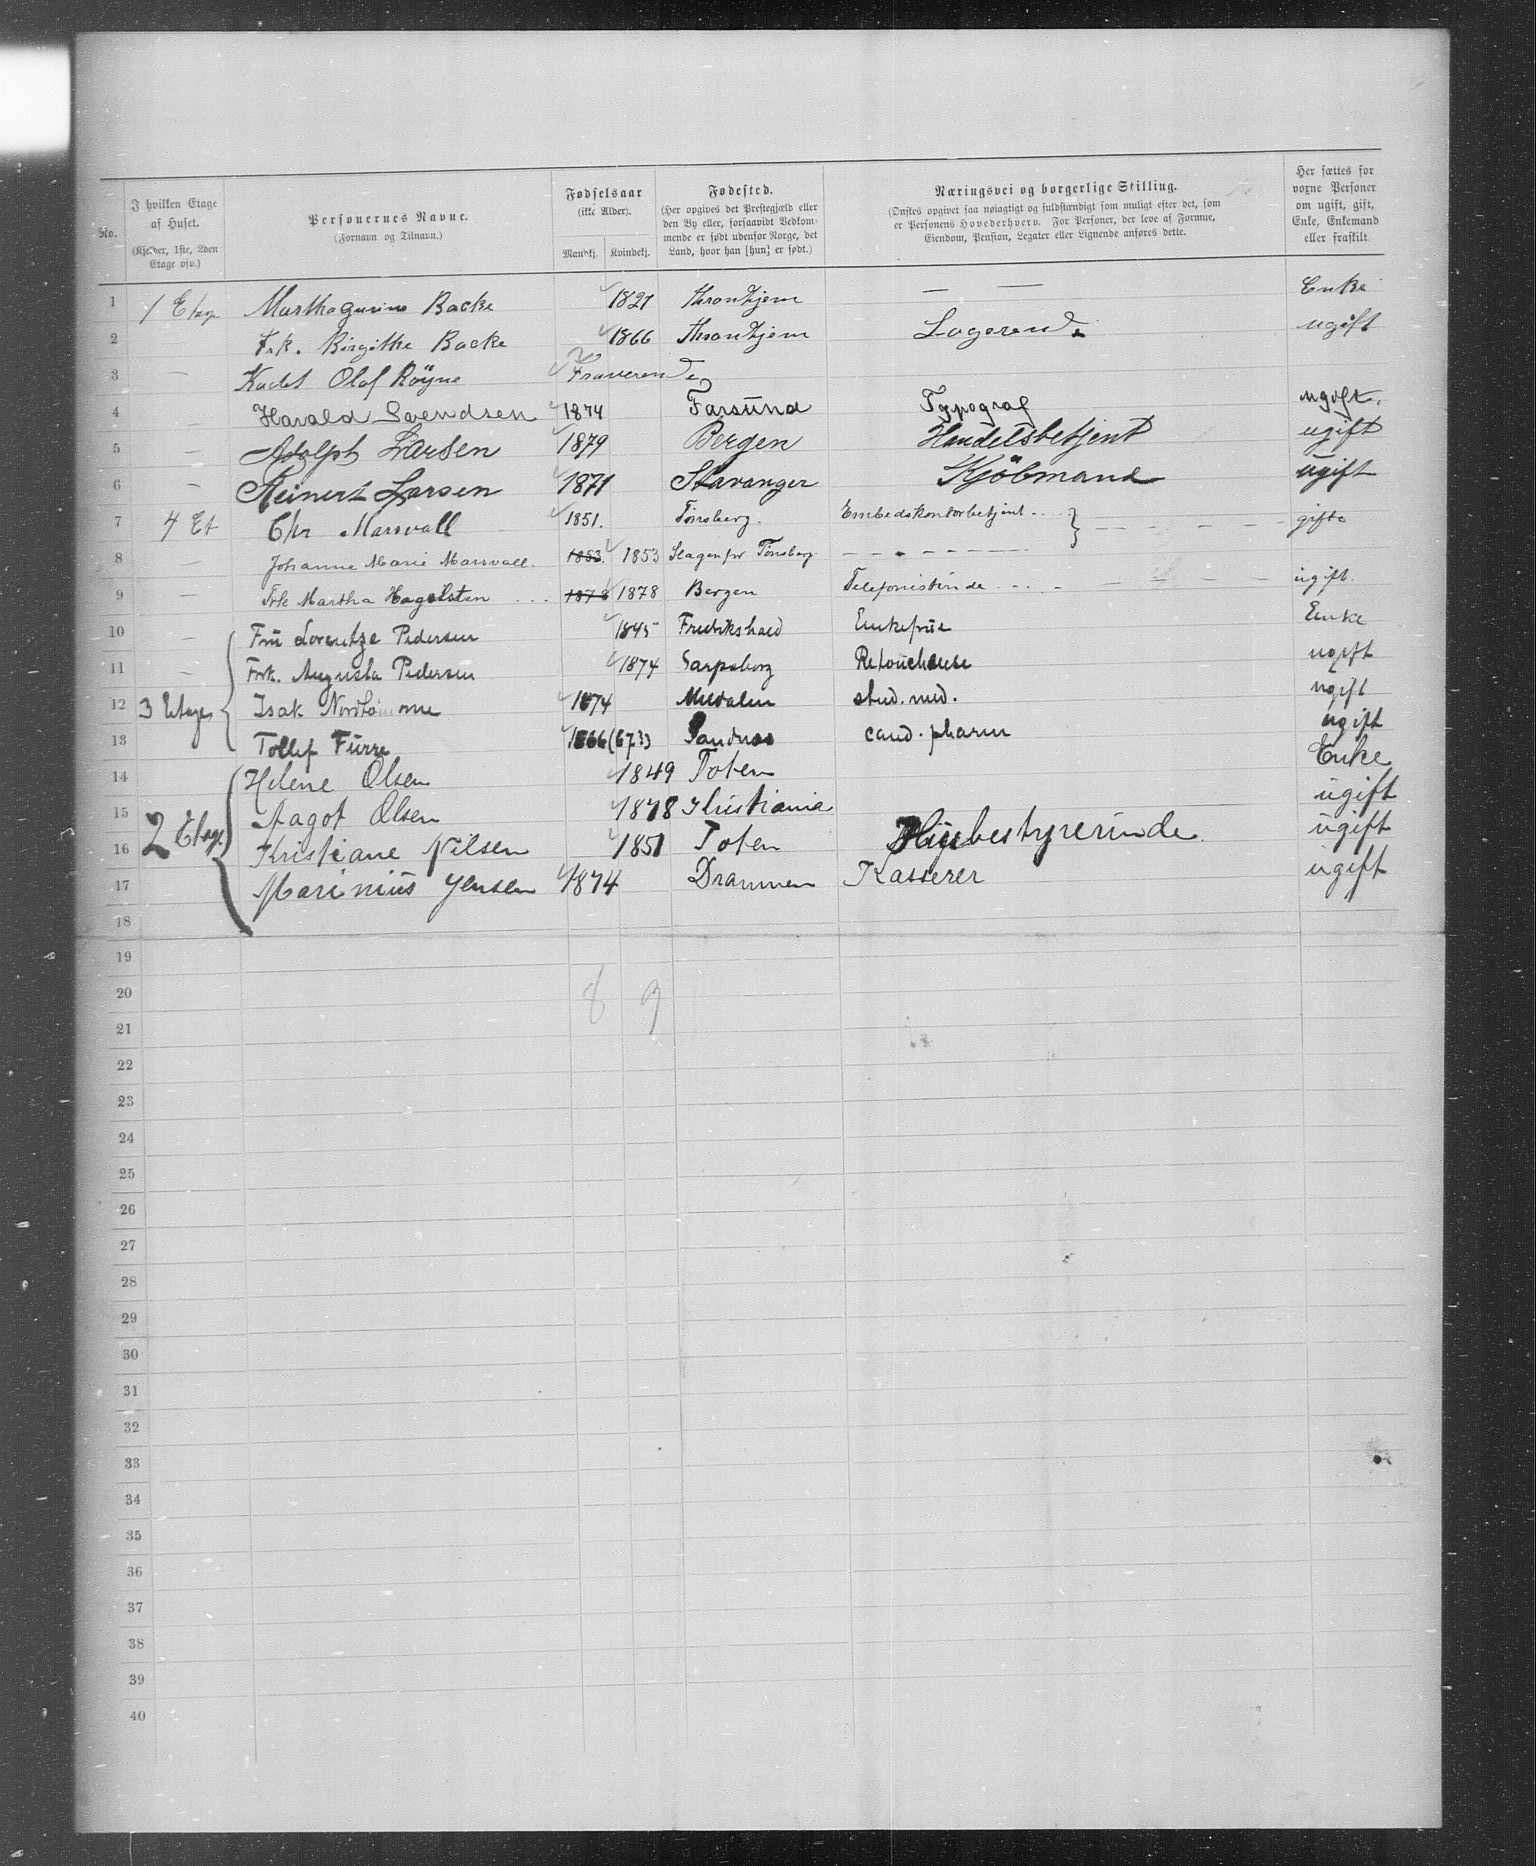 No. I hvilken Etage af Huset. (Kjelder, 1ste, 2den Etage osv.) Personernes Navne. (Fornavn og Tilnavn.) Fødselsaar (ikke Alder). Mandkj. Kvindekj. Fødested. (Her opgives det Præstegjæld eller den By eller, forsaavidt Vedkommende er født udenfor Norge, det Land, hvor han [hun] er født.) Næringsvei og borgerlige Stilling. (Ønskes opgivet saa nøiagtigt og fuldstændigt som muligt efter det, som er Personens Hovederhverv. For Personer, der leve af Formue, Eiendom, Pension, Legater eller Lignende anføres dette. Her sættes for voxne Personer om ugift, gift, Enke, Enkemand eller fraskilt
1 1 Etage Marthagurine Backe 1821 Throndhjem — — Enke
2 Frk. Birgithe Backe 1866 Throndhjem Logerende ugift
3 — Kadet Olaf Röyne Fraverende
4 — Harald Svendsen 1874 Farsund Typograf ugift.
5 — Adolph Larsen 1879 Bergen Handelsbetjent ugift
6 — Reinert Larsen 1871 Stavanger Kjöbmand ugift
7 4 Et Chr Marsvall 1851. Tönsberg. Embedskontorbetjent - - - - gifte
8 — Johanne Marie Marsvall. 1853. 1853 Slagen pr Tönsberg - - - - - - -
9 — Frk Martha Hagelsten 1878 1878 Bergen Telefonistinde - - - - ugift.
10 — Fru Lorentze Pedersen 1845 Fredrikshald Enkefrue Enke
11 — Frk. Augusta Pedersen 1874 Sarpsborg Retoucheuse ugift
12 3 Etage Isak Nordtømme 1874 stud. med. ugift
13 Tollef Furre 1866 (673) Sandnæs cand. pharm ugift
14 Helene Olsen 1849 Toten Enke
15 Aagot Olsen 1878 Kristiania ugift
16 2 Etage Kristiane Nilsen 1851 Toten Husbestyrerinde ugift
17 Marinius Jensen 1874 Drammen Kasserer ugift
18
19
20 8 9
21
22
23
24
25
26
27
28
29
30
31
32
33
34
35
36
37
38
39
40